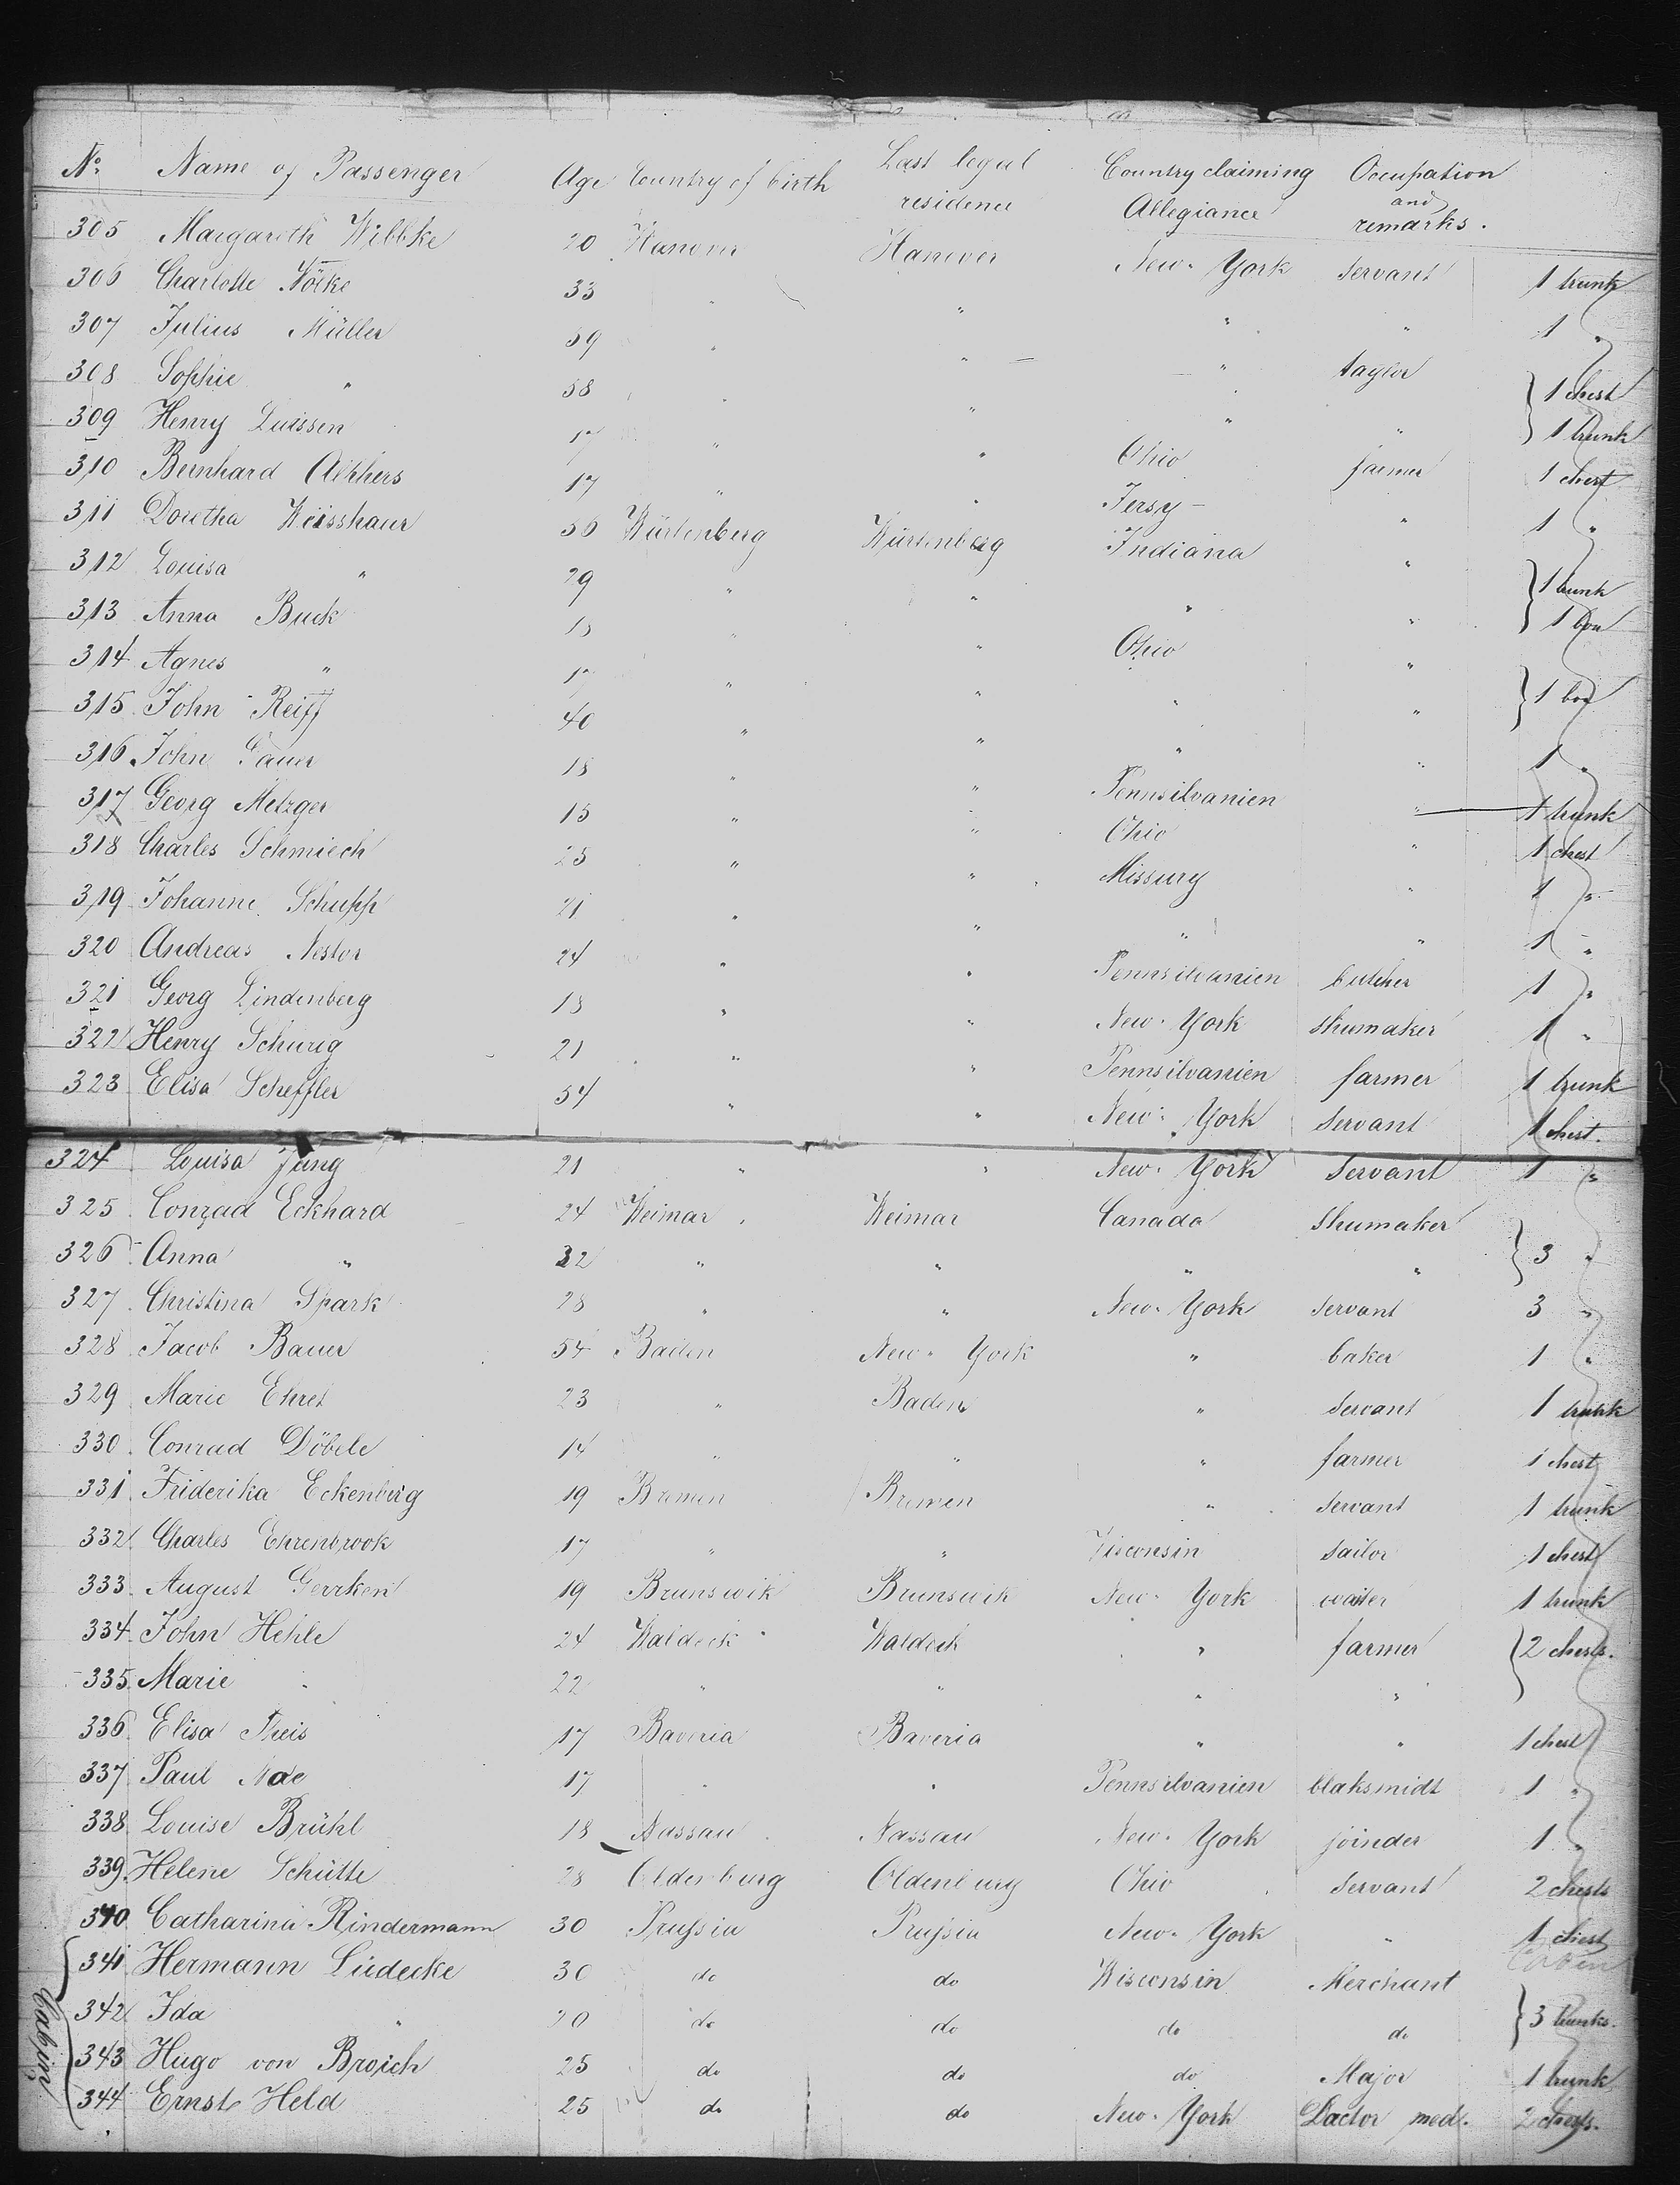 No. Name of Passenger Age Country of birth Last legal residence Country claiming Allegiance Occupation and remarks.
305 Margareth Wibbke 20 Hanover Hanover New-York Servant 1 trunk
306 Charlotte Nölke 33 " " " " 1 "
307 Julius Müller 59 " " " taylor } 1 chest
308 Sophie " 58 " " " " } 1 trunk
309 Henry Luissen 17 " " Ohio farmer 1 chest
310 Bernhard Albhers 17 " " Jersy " 1 "
311 Doretha Weisshaur 56 Würtenberg Würtenberg Indiana " } 1 trunk
312 Louisa " 29 " " " " } 1 box
313 Anna Buck " " Ohio " } 1 box
314 Agnes " " " " "
315 John Reiff 40 " " " " 1 "
316 John 18 " " Pennsilvanien " 1 trunk
317 Georg Metzger 15 " " Ohio " 1 chest
318 Charles Schmiech 25 " " Missury " 1 "
319 Johanne Schupp 21 " " " " 1 "
320 Andreas Nestor 24 " " Pennsilvanien butcher 1 "
321 Georg Lindenberg 18 " " New-York shumaker 1 "
322 Henry Schurig 21 " " Pennsilvanien farmer 1 trunk
323 Elisa Scheffler 54 " " New-York Servant 1 chest.
324 Louisa Jung 21 " " New-York Servant 1 "
325 Conrad Eckhard 24 Weimar Weimar Canada Shumaker } 3 "
326 Anna " 22 " " " "
327 Christina Spark 28 " " New-York Servant 3 "
328 Jacob Bauer 54 Baden New-York " baker 1 "
329 Marie Ehret 23 " Baden " Servant 1 trunk
330 Conrad Döbele 14 " " " farmer 1 chest
331 Friderika Eckenberg 19 Bremen Bremen " Servant 1 trunk
332 Charles Ehrenbrook 17 " " Visconsin Sailor 1 chest
333 August Gerrken 19 Brunswik Brunswik New-York waiter 1 trunk
334 John Hehle 24 Waldeck Waldeck " farmer } 2 chests.
335 Marie " 22 " " " "
336 Elisa Theis 17 Baveria Baveria " " 1 chest
337 Paul Noe 17 " " Pennsilvanien blaksmidt 1 "
338 Louise Brühl 18 Nassau Nassau New-York joinder 1 "
339 Helene Schütte 28 Oldenburg Oldenburg Ohio Servant 2 chests
340 Catharina Rindermann 30 Prussia Prussia New-York " 1 chest
Cabin
341 Hermann Lüdecke 30 do do Wisconsin Merchant } 3 trunks.
342 Ida " 20 do do do do
343 Hugo von Broich 25 do do do Major 1 trunk
344 Ernst Held 25 do do New-York Doctor med. 2 chests.
Cabin